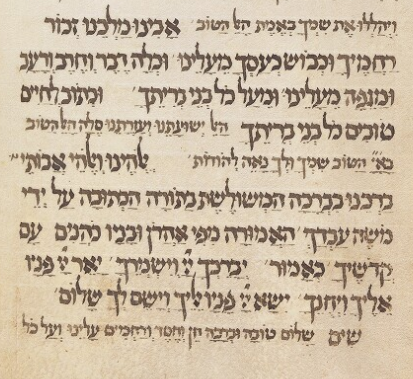 ויהללו את שמך באמת האל הטוב אבינו מלכנו זכור
רחמיך וכבוש כעסך מעלינו וכלה דבר וחרב ורעב
ומגפה מעלינו ומעל כל בני בריתך וכתוב לחיים
טובים כל בני בריתך האל ישועתנו ועזרתנו סלה האל הטוב
הטוב שמך ולך נאה להודות אלהינו ואלהי אבותי
ברכנו בברכה המשולשת בתורה הכתובה על ידי
משה עבדך האמורה מפי אהרן ובניו כהנים עם
קדשיך כאמור יברכך וישמרך יאר פניו
אליך ויחנך ישא פניו אליך וישם לך שלום
שים שלום טובה וברכה חן וחסד ורחמים עלינו ועל כל